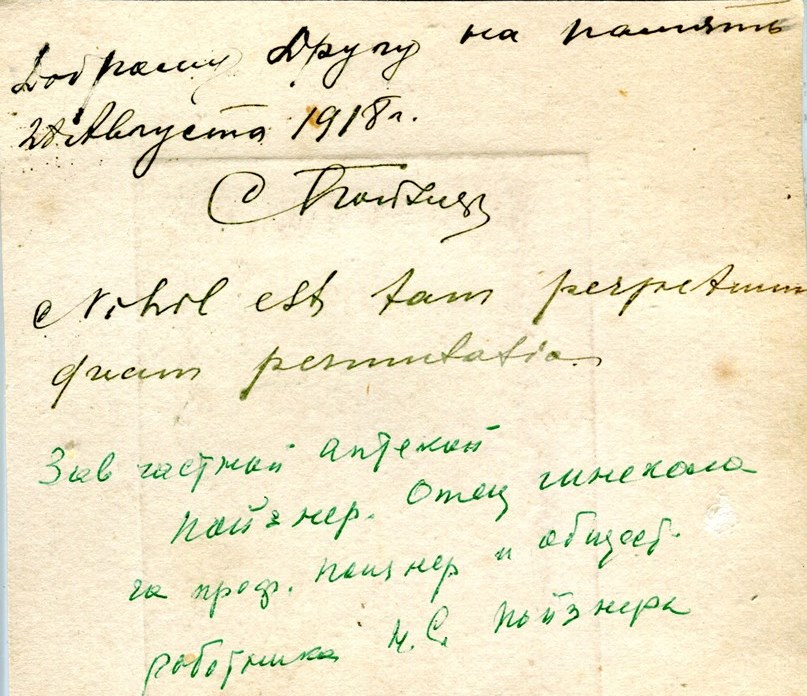 Доброму Другу на память
28 Августа 1918 г.
С Пойзнер
Nihil est tam perpetuum
quam permutatio
Зав частной аптекой
Пойзнер. Отец гинеколо
га проф. Пойзнер и общест.
работника М.С. Пойзнера